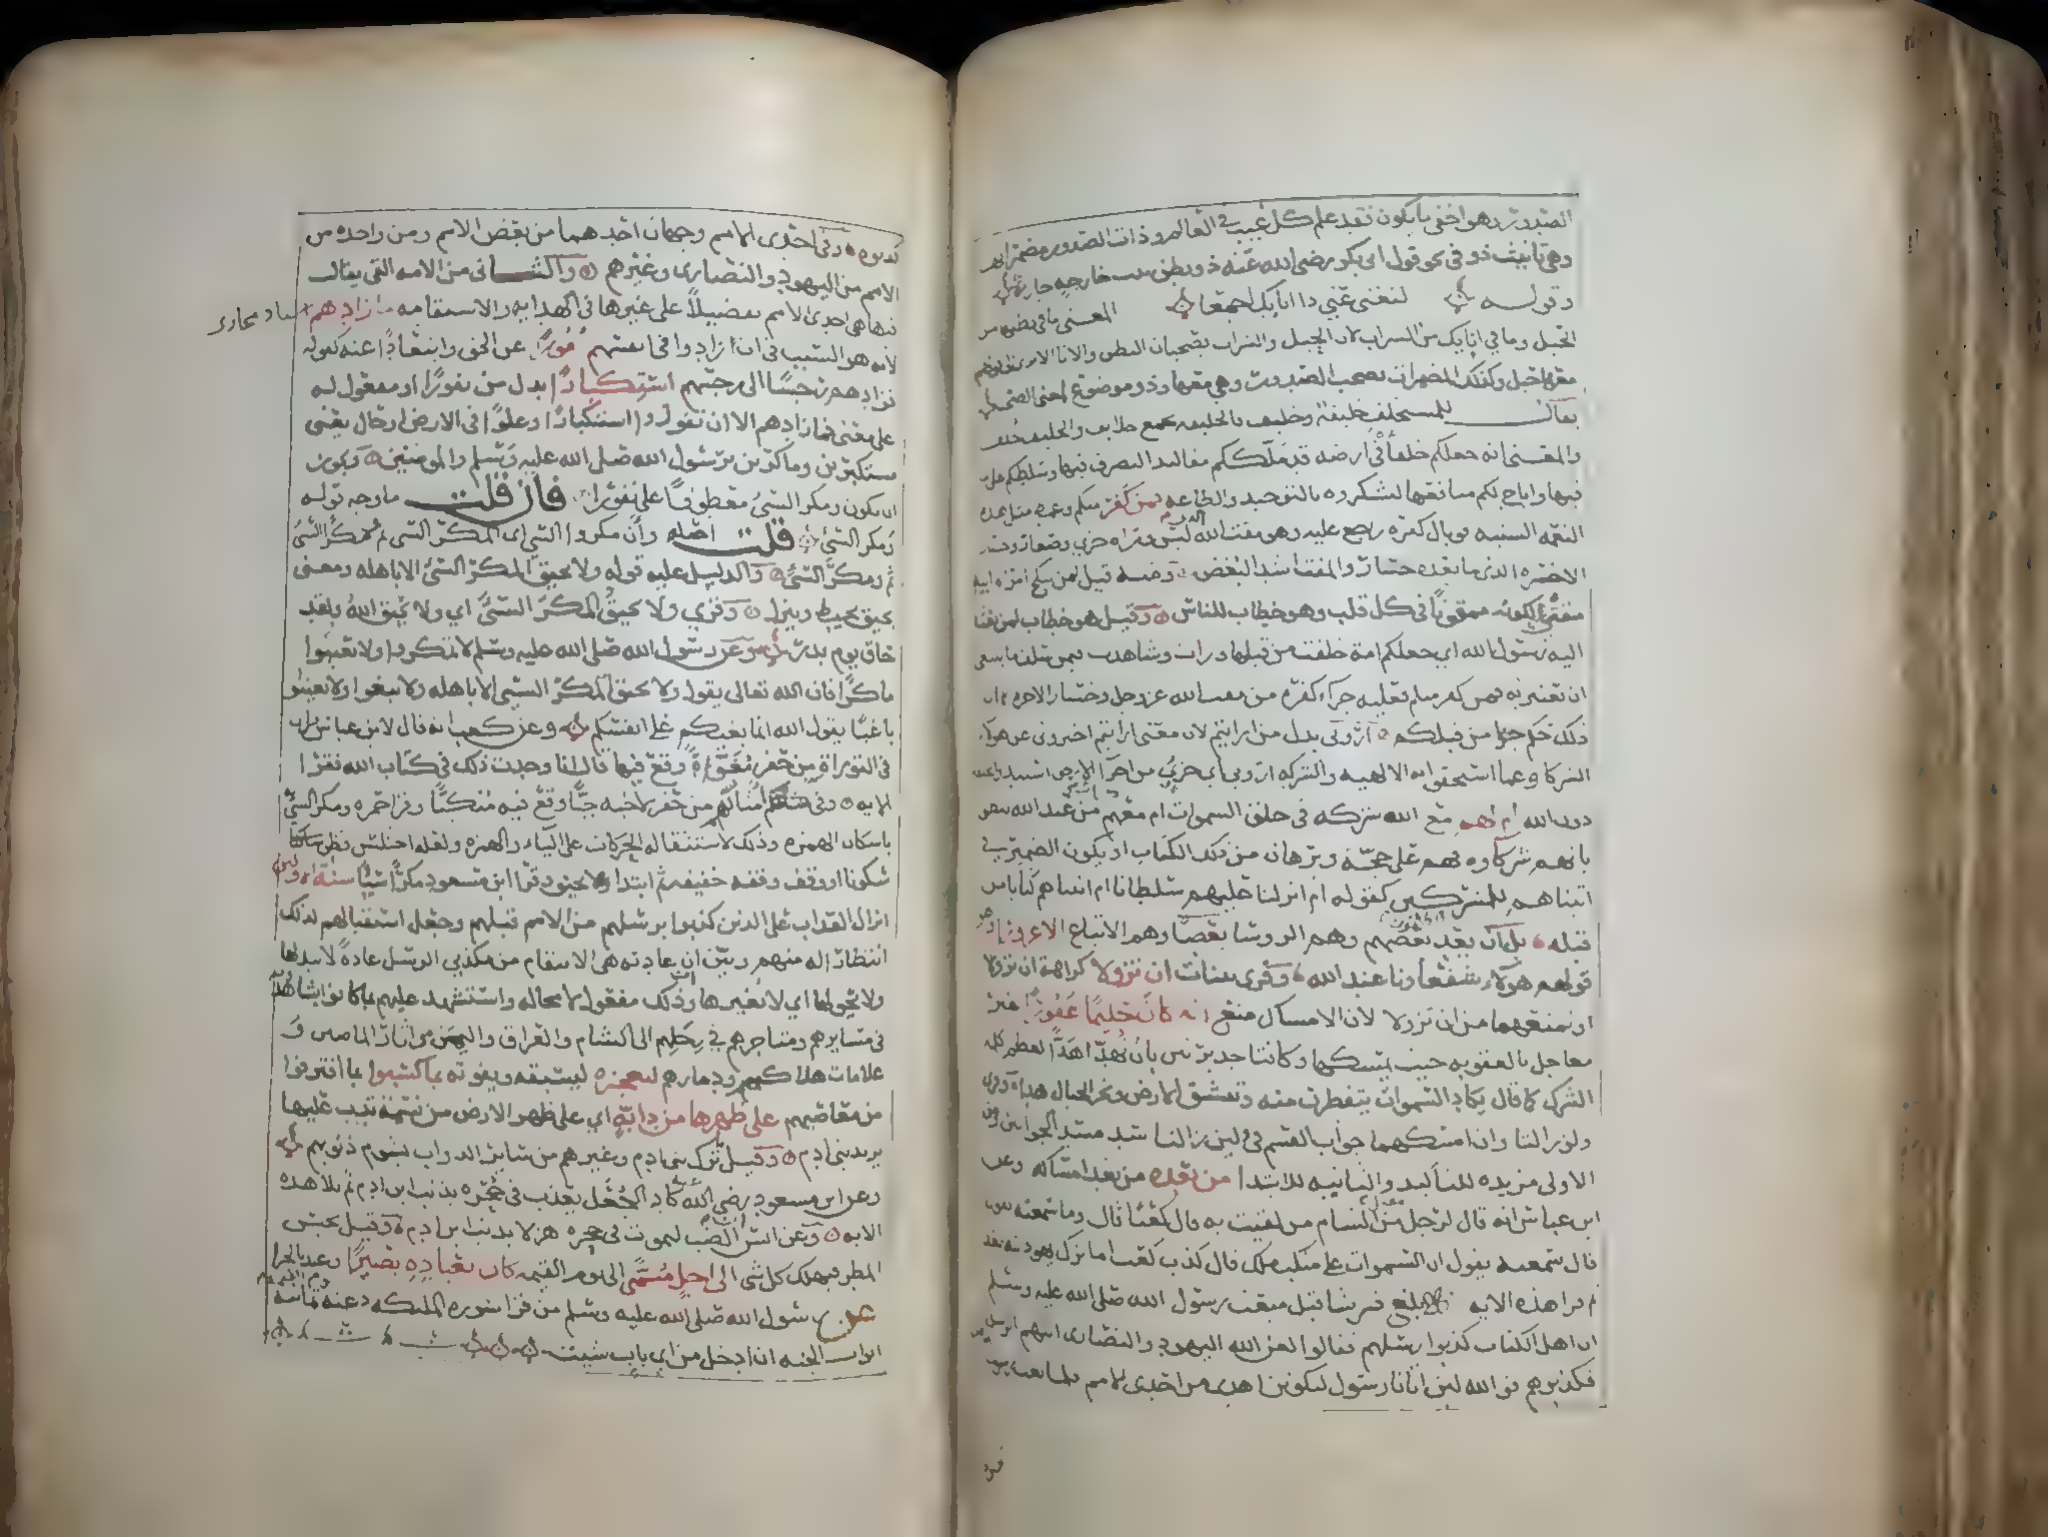 الصدور وهو اخفى ما يكون فقد علم كل غيب في العالم وذات الصدور مضمراتها
وهي تانيث ذو في نحو قول ابي بكر رضي الله عنه ذو بطن بنت خارجه جاريه
وقوله لتغنى عني ذا انايك اجمعا المعنى ما في بطنها من
الحبل وما في انايك من الشراب لان الحبل والشراب يصحبان البطن والانا الا ترى قولهم
معها حبل وكذلك المضمرات تصحب الصدور وهي معها وذو موضوع لمعنى الصحبه
يقال للمستخلف خليفة وخليف فالخليفه تجمع خلايف والخليف خلفا
والمعنى انه جعلكم خلفاء في ارضه قد ملككم مقاليد التصرف فيها وسلطكم على ما
فيها واباح لكم منافعها لتشكروه بالتوحيد والطاعه فمن كفر منكم وغمط مثل هذه
النعمه السنيه فوبال كفره راجع عليه وهو مقت الله الذي ليس وراه خزي وصغار وخسار
الاخره الذي ما بعده خسار والمقت اشد البغض ومنه قيل لمن ينكح امراة ابيه
مقتي لكونه ممقوتا في كل قلب وهو خطاب للناس وقيل هو خطاب لمن بعث
اليه رسول الله اي جعلكم امة خلفت من قبلها ورات وشاهدت فيمن سلف ما ينبغي
ان تعتبر به فمن كفر منكم فعليه جزاء كفره من مقت الله عز وجل وخسار الاخره كما ان
ذلك حكم من قبلكم اروني بدل من ارايتم لان معنى ارايتم اخبروني عن هولاء
الشركا وعما استحقوا به الالهيه والشركه اروني اي جزء من اجزا الارض استبدوا بخلقه
دون الله ام لهم مع الله شركه في خلق السموات ام معهم كتاب من عند الله ينطق
بانهم شركاوه فهم على حجة وبرهان من ذلك الكتاب او يكون الضمير في
اتيناهم للمشركين كقوله ام انزلنا عليهم سلطانا ام اتيناهم كتابا من
قبله بل ان يعد بعضهم وهم الروسا بعضا وهم الاتباع الا غرورا وهو
قولهم هولاء شفعاونا عند الله وقرى بينات ان تزولا كراهة ان تزولا
او يمنعهما من ان تزولا لان الامساك منع انه كان حليما غفورا غير
معاجل بالعقوبه حيث يمسكهما وكانتا جديرتين بان تهدا هدا لعظم كلمه
الشرك كما قال تكاد السموات يتفطرن منه وتنشق الارض وتخر الجبال هدا وقرى
ولو زالتا وان امسكهما جواب القسم في ولين زالتا سد مسد الجوابين ومن
الاولى مزيده للتاكيد والثانيه للابتدا من بعده من بعد امساكه وعن
ابن عباس انه قال لرجل مقبل من الشام من لقيت به قال كعبا قال وما سمعته يقول
قال سمعته يقول ان السموات على منكب ملك قال كذب كعب اما ترك يهوديته بعد
ثم قرا هذه الايه بلغ قريشا قبل مبعث رسول الله صلى الله عليه وسلم
ان اهل الكتاب كذبوا رسلهم فقالوا لعن الله اليهود والنصارى اتتهم الرسل
فكذبوهم فوالله لين اتانا رسول لنكونن اهدى من احدى الامم فلما بعث رسول
كذبوه وفي احدى الامم وجهان احدهما من بعض الامم ومن واحده من
الامم من اليهود والنصارى وغيرهم والثاني من الامه التي يقال
فيها هي احدى الامم تفضيلا على غيرها في الهدايه والاستقامه ما زادهم اسناد مجازي
لانه هو السبب في ان ازدادوا في انفسهم نفورا عن الحق وابتعادا عنه كقوله
فزادهم رجسا الى رجسهم استكبارا بدل من نفورا او مفعول له
على معنى فما زادهم الا ان نفروا استكبارا وعلوا في الارض او حال بمعنى
مستكبرين وماكرين برسول الله صلى الله عليه وسلم والمومنين ويجوز
ان يكون ومكر السيئ معطوفا على نفورا فان قلت ما وجه قوله
ومكر السيئ قلت اصله وان مكروا السيئ اي المكر السيئ ثم ومكرا السيئ
ثم ومكر السيئ والدليل عليه قوله ولا يحيق المكر السيئ الا باهله ومعنى
يحيق يحيط وينزل وقرى ولا يحيق المكر السيئ اي ولا يحيق الله ولقد
حاق يوم بدر وعن رسول الله صلى الله عليه وسلم لا تمكروا ولا تعينوا
ماكرا فان الله تعالى يقول ولا يحيق المكر السيئ الا باهله ولا تبغوا ولا تعينوا
باغيا يقول الله انما بغيكم على انفسكم وعن كعب انه قال لابن عباس
في التوراة من حفر مغواة وقع فيها قال انا وجدت ذلك في كتاب الله فقرا
الايه وفي امثالهم من حفر لاخيه جبا وقع فيه منكبا وقرا حمزه ومكر السيئ
باسكان الهمزه وذلك لاستثقاله الحركات على الياء والهمزه ولعله اختلس فظن
سكونا او وقف وقفه خفيفه ثم ابتدا ولا يحيق وقرا ابن مسعود ومكرا سيئا سنة الاولين
انزال العذاب على الذين كذبوا برسلهم من الامم قبلهم وجعل استقبالهم لذلك
انتظارا له منهم وبين ان عادته هي الانتقام من مكذبي الرسل عادة لا يبدلها
ولا يحولها اي لا يغيرها وان ذلك مفعول لا محاله واستشهد عليهم بما كانوا يشاهدونه
في مسايرهم ومتاجرهم في رحلهم الى الشام والعراق واليمن من اثار الماضين و
علامات هلاكهم ودمارهم ليعجزه ليسبقه ويفوته بما كسبوا بما اقترفوا
من معاصيهم على ظهرها من دابة اي على ظهر الارض من نسمة تدب عليها
يريد بني ادم وقيل ترك بني ادم وغيرهم من ساير الدواب بشوم ذنوبهم
وعن ابن مسعود رضي الله كاد الجعل يعذب في جحره بذنب ابن ادم ثم تلا هذه
الايه وعن انس ان الضب ليموت في جحره هزلا بذنب ابن ادم وقيل يحبس
المطر فيهلك كل شي الى اجل مسمى الى يوم القيمه كان بعباده بصيرا وعيد بالجزا
عن رسول الله صلى الله عليه وسلم من قرا سوره الملائكه دعته ثمانية
ابواب الجنه ان ادخل من اي باب شيت